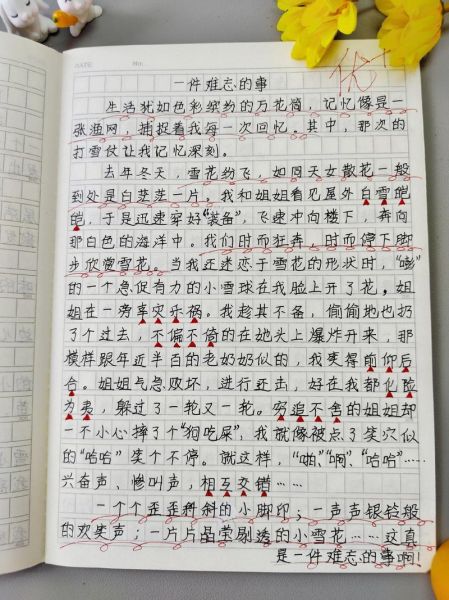 DATE
No.
优+
一件难忘的事
生活犹如色彩缤纷的万花筒，记忆像是一
张渔网，捕捉着我每一次回忆。其中，那次的
打雪仗让我记忆深刻。
去年冬天，雪花纷飞，如同天女散花一般
到处是白茫茫一片。我和姐姐看见屋外白雪皑
皑，于是迅速穿好“装备”，飞速冲向楼下，奔向
那白色的海洋中。我们时而狂奔，时而停下脚
步欣赏雪花。当我还迷恋于雪花的形状时，“嘭”
的一个急促有力的小雪球在我脸上开了花。姐
姐在一旁幸灾乐祸。我趁其不备，偷偷地也扔
了个过去，不偏不倚的在她头上爆炸开来，那
模样跟年近半百的老奶奶似的，我笑得前仰后
合。姐姐气急败坏，进行还击，好在我都化险
为夷，躲过了一轮又一轮。穷追不舍的姐姐却
一不小心摔了个“狗吃屎”，我就像被点了笑穴似
的“哈哈”笑个不停。就这样，“啪”“啊”“哈哈”……
兴奋声、惨叫声，相互交错……
一个个歪歪斜斜的小脚印；一声声银铃般
的欢笑声；一片片晶莹剔透的小雪花……这真
是一件难忘的事啊！